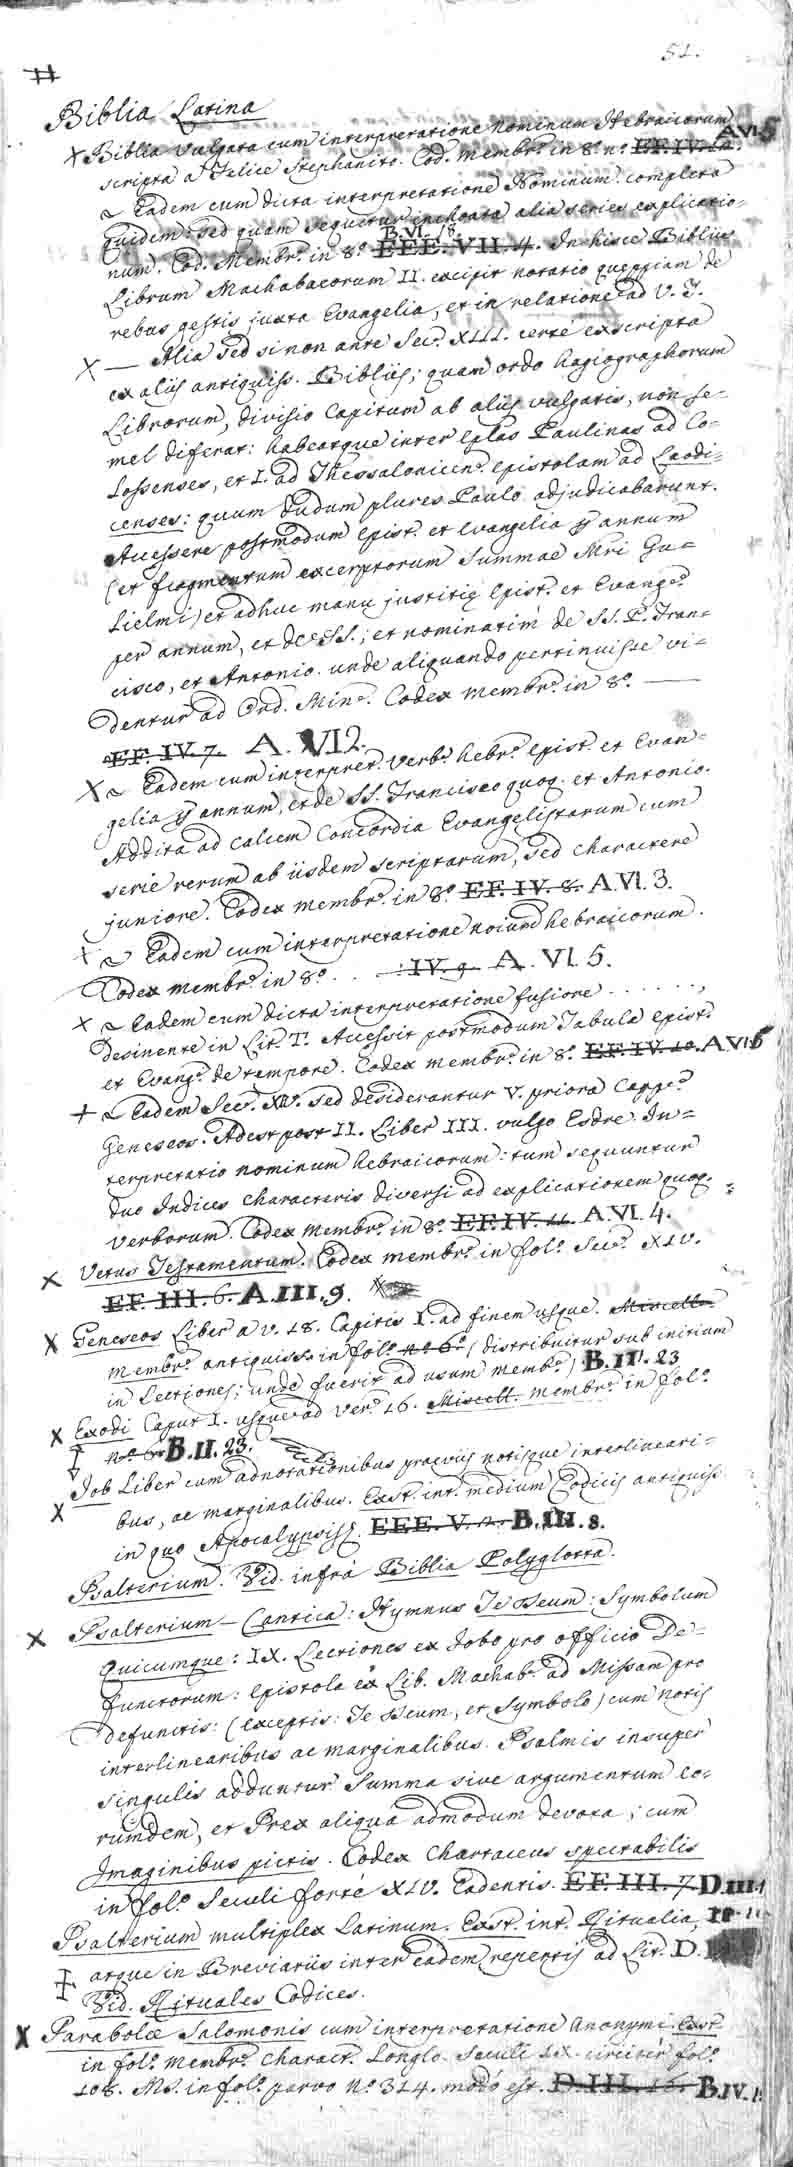 51.
Biblia Latina
X Biblia Vulgata cum interpretatione nominum Hebraicorum
scripta a Felice Stephanito. Cod. membr. in 8º. nº. EF. IV. A.VI.5
~ Eadem cum dicta interpretatione Nominum completa
quidem: sed quam sequitur inchoata alia series explicatio=
num. Cod. Membr. in 8º. EEE. VII. 4. B.VI.18. In hisce Bibliis
Librum Machabaeorum II. excipit notatio quaepiam de
rebus gestis juxta Evangelia, et in relatione ad V. T.
X — Alia sed si non ante Sec. XIII. certé exscripta
ex aliis antiquiss. Bibliis; quam ordo hagiographorum
Librorum, divisio Capitum ab aliis vulgatis, non se=
mel diferat: habeatque inter Eplas Paulinas ad Co=
lossenses, et I. ad Thessalonicen. epistolam ad Laodi=
censes: quum dudum plures Paulo adjudicabarunt.
Accessere postmodum Epist. et Evangelia p annum
(et fragmentum excerptorum Summae Mri Gu=
lielmi) et adhuc manu justitie Epist. et Evang.
per annum, et de SS.; et nominatim de SS. P. Fran=
cisco, et Antonio. unde aliquando pertinuisse vi=
dentur ad Ord. Min. Codex membr. in 8º. —
EF. IV. 7. A. VI 2.
X ~ Eadem cum interpret. verb. hebr. Epist. et Evan=
gelia p annum, et de SS. Francisco quoq. et Antonio.
Addita ad calcem Concordia Evangelistarum cum
serie rerum ab iisdem scriptarum, sed charactere
juniore. Codex membr. in 8º. EF. IV. 8. A.VI.3.
X ~ Eadem cum interpretatione noium hebraicorum.
Codex membr. in 8º. . . IV. 9. A. VI. 5.
X ~ Eadem cum dicta interpretatione fusiore . . . . . .,
desinente in Lit. T. Accessit postmodum Tabula Epist.
et Evang. de tempore. Codex membr. in 8º. EF. IV. 10. A.VI
+ ~ Eadem Sec. XIV. sed desiderantur V. priora Capp.
Geneseos. Adest post II. Liber III. vulgo Esdre. In=
terpretatio nominum hebraicorum: tum sequuntur
duo Indices characteris diversi ad explicationem quoq.
verborum. Codex membr. in 8º. EF. IV. 11. A.VI.4.
X Vetus Testamentum. Codex membr. in fol. Sec. XIV.
EF. III. 6. A.III.9.
X Geneseos Liber a v. 18. Capitis I. ad finem usque. Miscell.
membr. antiquiss. in fol. nº. 6º. (distribuitur sub initium
in Lectiones; unde fuerit ad usum membr.) B.II.23
X Exodi Caput I. usque ad ver. 16. Miscell. membr. in fol.
B.II.23.
X Job Liber cum adnotationibus praeviis notisque interlineari=
bus, ac marginalibus. Exst. int. medium Codicis antiquiss.
in quo Apocalypsis. EEE. V. B.III.8.
Psalterium. Vid. infrá Biblia Polyglotta.
X Psalterium — Cantica: Hymnus Te Deum: Symbolum
Quicumque: IX. Lectiones ex Jobo pro officio De=
functorum: Epistola ex Lib. Machab. ad Missam pro
defunctis: (exceptis: Te Deum, et Symbolo) cum notis
interlinearibus ac marginalibus. Psalmis insuper
singulis adduntur Summa sive argumentum eo=
rumdem, et Prex aliqua admodum devota; cum
Imaginibus pictis. Codex Chartaceus spectabilis
in fol. Seculi forté XIV. Cadentis. EF. III. 7. D.III.1
Psalterium multiplex Latinum. Exst. int. Ritualia,
atque in Breviariis inter eadem repertis ad Lit. D.
Vid. Rituales Codices.
X Parabolæ Salomonis cum interpretatione Anonymi. Exst.
in fol. membr. Charact. Longlo. Seculi IX. circitér fol.
108. MS. in fol. parvo Nº. 314. modó est. D. III. 16. B.IV.1.